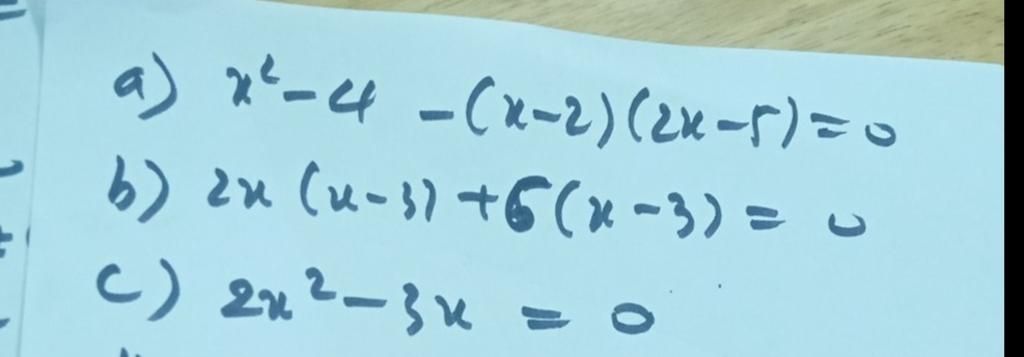 a) x² - 4 - (x - 2)(2x - 5) = 0
b) 2x (x - 3) + 6(x - 3) = 0
c) 2x² - 3x = 0